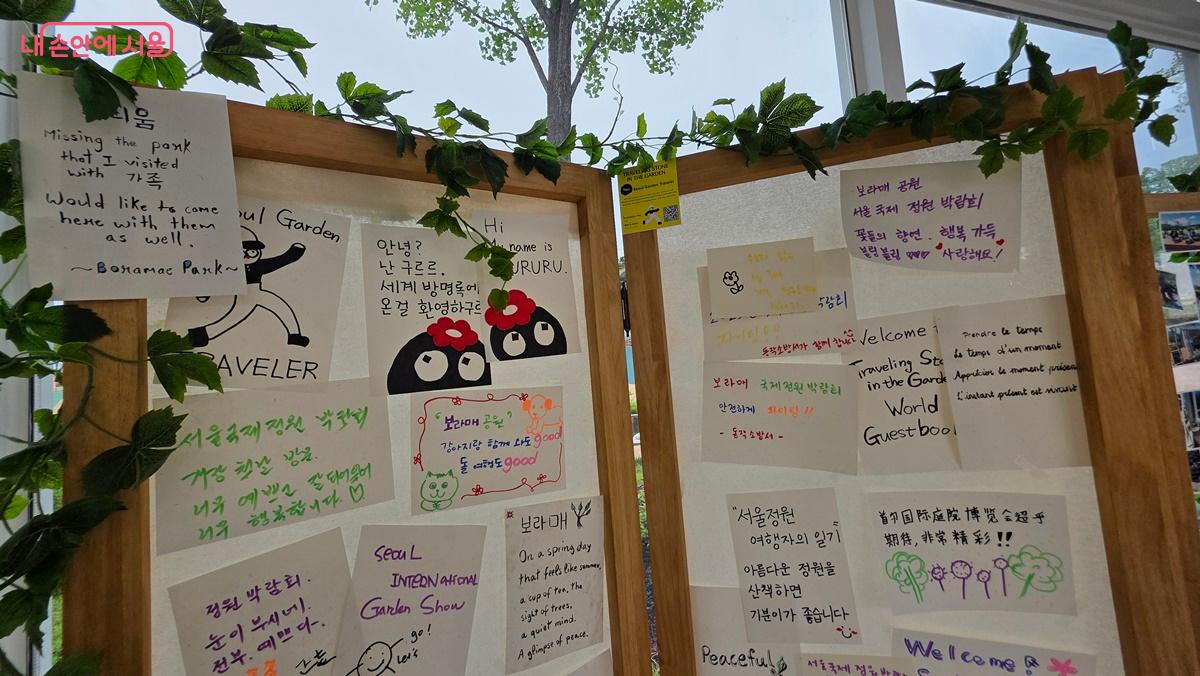 내 손안에 서울
Missing the park
that I visited
with 가족
Would like to come
here with them
as well.
~Boramae Park~
Garden
TRAVELER
안녕?
난 구르르.
세계 방명록에
온걸 환영하구르
Hi
My name is
GURURU.
TRAVELING STONE
IN THE GARDEN
Seoul Garden Traveler
서울국제정원 박람회
개장 첫날 방문.
너무 예쁘고
너무 행복합니다.
"보라매 공원"
강아지랑 함께 와도 good
돌 여행도 good
정원 박람회.
눈이 부시네.
전부. 예쁘다-.
Seoul
INTERNATIONAL
Garden Show
go!
Let's
보라매
On a spring day
that feels like summer,
a cup of tea, the
sight of trees,
a quiet mind.
A glimpse of peace.
보라매 공원
서울 국제 정원 박람회
꽃들의 향연. 행복 가득
블링블링 사랑해요!
동작소방서가 함께 합니다
보라매 국제정원박람회
안전하게 화이팅!!
- 동작소방서 -
Welcome
Traveling
in the Garde
World
Guestbook
Prendre le temps
Le temps d'un moment
Apprécier le moment présent
L'instant présent est
"서울정원
여행자의 일기"
아름다운 정원을
산책하면
기분이가 좋습니다
首尔国际庭院博览会超乎
期待,非常精彩!!
Peaceful
서울국제정원박람
Welcome